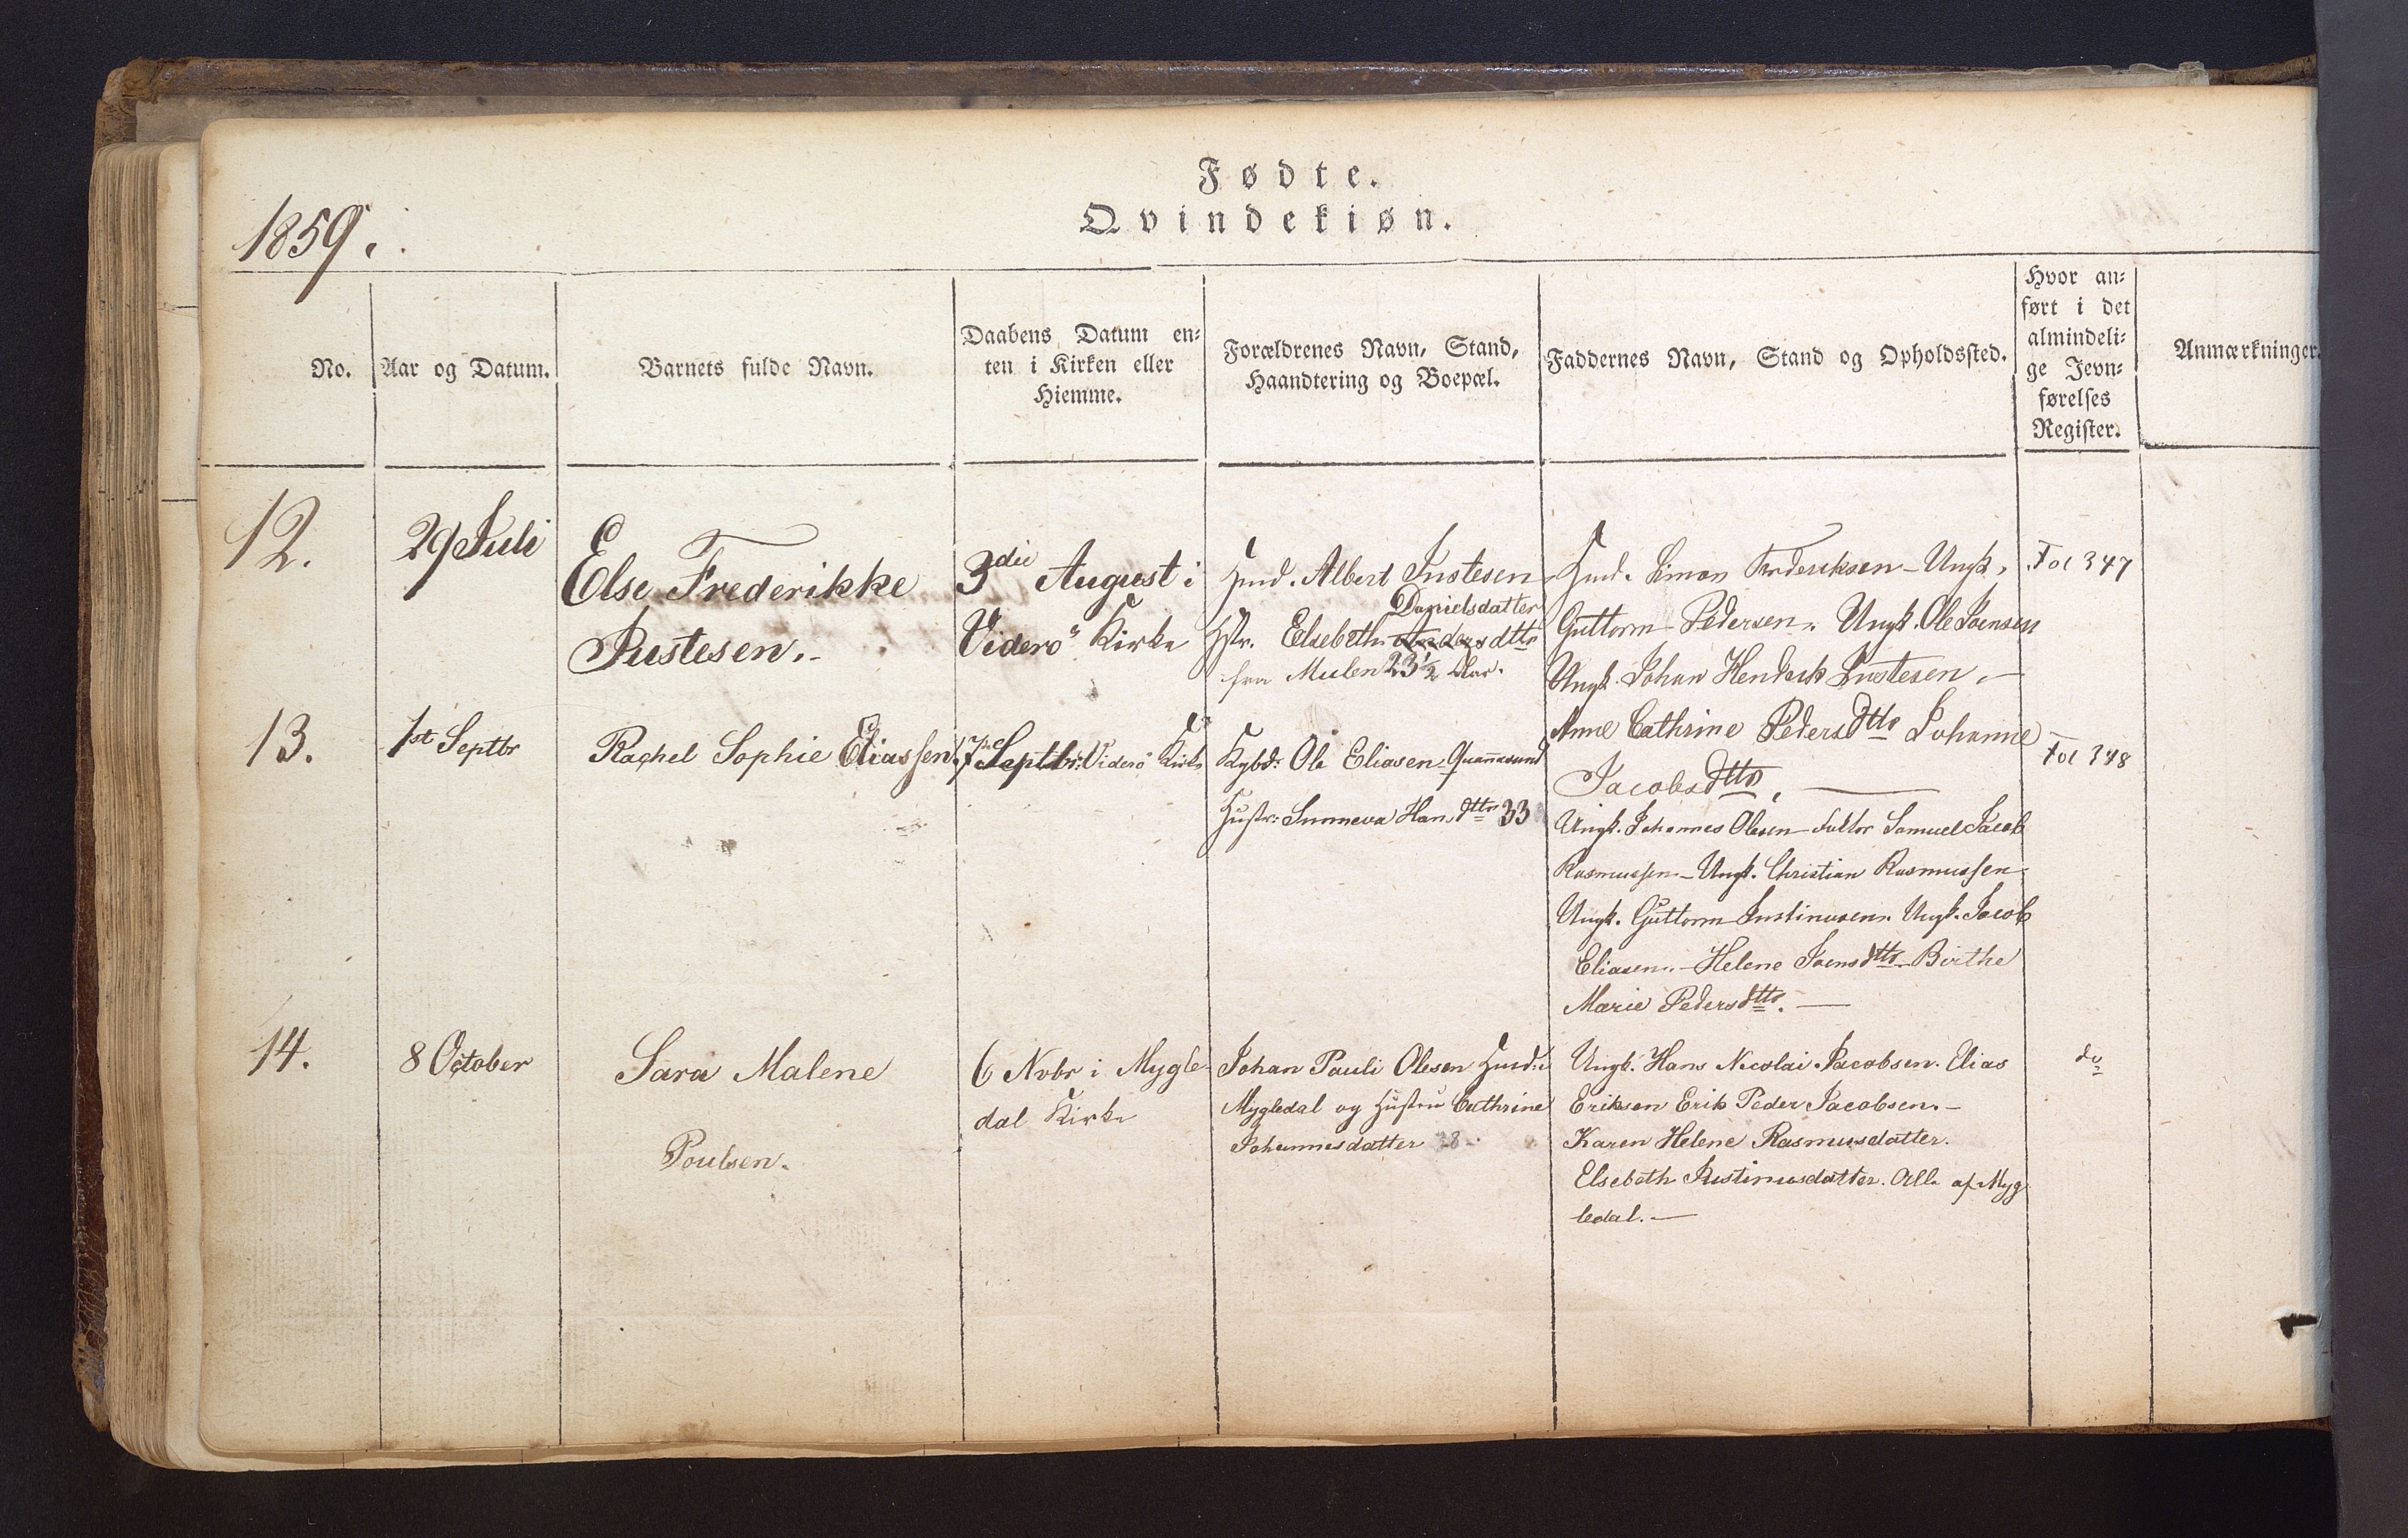 Fødte.
Qvindekiøn.
1859.
No.
Aar og Datum.
Barnets fulde Navn.
Daabens Datum en=
ten i Kirken eller
Hiemme.
Forældrenes Navn, Stand,
Haandtering og Boepæl.
Faddernes Navn, Stand og Opholdssted.
Hvor an=
ført i det
almindeli=
ge Jevn=
førelses
Register.
Anmærkninger.
12.
29 Juli
Else Frederikke
Justesen.
3die August i
Viderö Kirke
Hmd. Albert Justesen
Danielsdatter
Hstr. Elsebeth Andersdttr
fra Mulen 23½ Aar.
Hmd. Simon Frederiksen - Ungk.
Guttorm Pedersen. Ungk. Ole Joensen
Ungk. Johan Hendrik Justesen. -
Anne Cathrine Pedersdttr Johanne
Jacobsdttr. -
Fol 347
13.
1st Septbr
Rachel Sophie Eliassen
Septbr: Viderö Kirke
Kybd: Ole Eliasen Quannasund
Hustr: Sunneva Hansdttr 33
Ungk. Johannes Olesen Samuel Jacob
Rasmussen - Ungk. Christian Rasmussen
Ungk. Guttorm Justinusen. Ungk. Jacob
Eliasen. - Helene Joensdttr Birthe
Marie Pedersdttr. -
Fol 348
14.
8 October
Sara Malene
Poulsen.
6 Nvbr i Mygle-
dal Kirke
Johan Pauli Olesen Husd: i
Mygledal og Hustru Cathrine
Johannesdatter 38 -
Ungk. Hans Nicolai Jacobsen. Elias
Eriksen Erik Peder Jacobsen. -
Karen Helene Rasmusdatter.
Elsebeth Justinusdatter. Alle af Myg
ledal. -
do